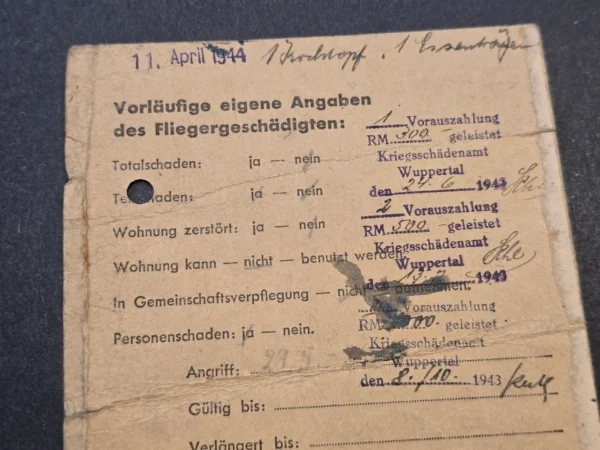 11. April 1944 1 Kochtopf, 1 Essenträger
Vorläufige eigene Angaben
des Fliegergeschädigten:
Totalschaden: ja — nein
Te schaden: ja — nein
Wohnung zerstört: ja — nein
Wohnung kann — nicht — benutzt werden.
In Gemeinschaftsverpflegung — nicht — aufnehmen.
Personenschaden: ja — nein.
Angriff: 29.5
Gültig bis:
Verlängert bis:
1 Vorauszahlung
RM. 300.- geleistet
Kriegsschädenamt
Wuppertal
den 24.6 1943
2 Vorauszahlung
RM. 500.- geleistet
Kriegsschädenamt
Wuppertal
1943
Vorauszahlung
RM. 00.- geleistet
Kriegsschädenamt
Wuppertal
den 8./10. 1943